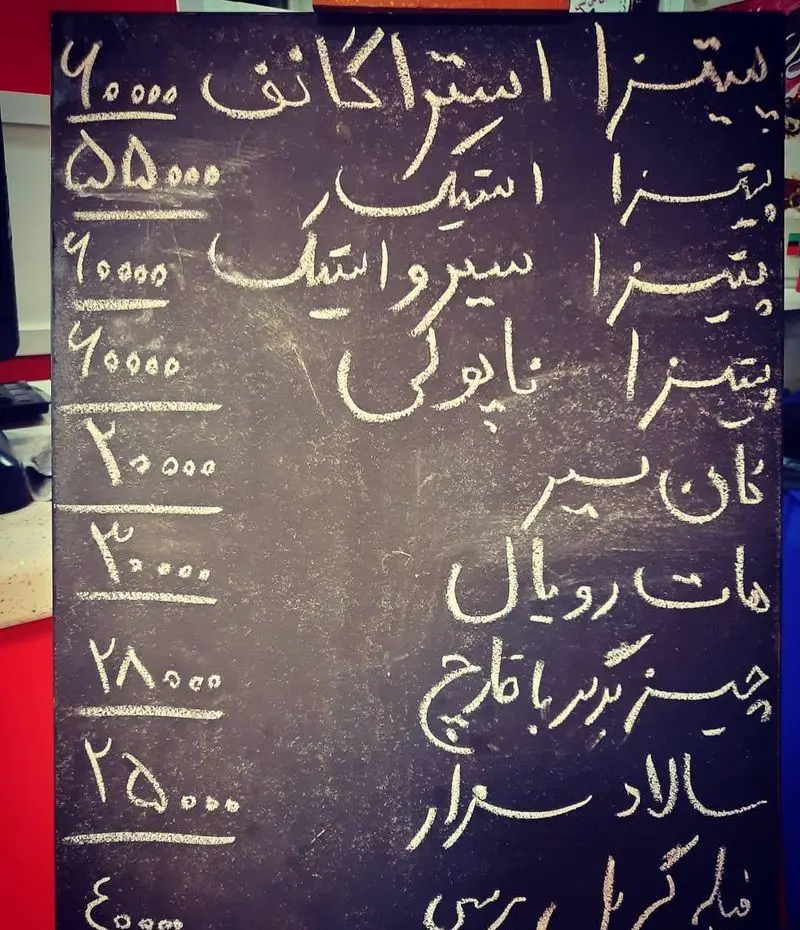 پیتزا استراگانف ۶۰۰۰۰
پیتزا استیک ۵۵۰۰۰
پیتزا سیر و استیک ۶۰۰۰۰
پیتزا ناپوکی ۶۰۰۰۰
نان سیر ۲۰۰۰۰
هات رویال ۳۰۰۰۰
چیز برگر با قارچ ۲۸۰۰۰
سالاد سزار ۲۵۰۰۰
فیله گریل ۴۰۰۰۰